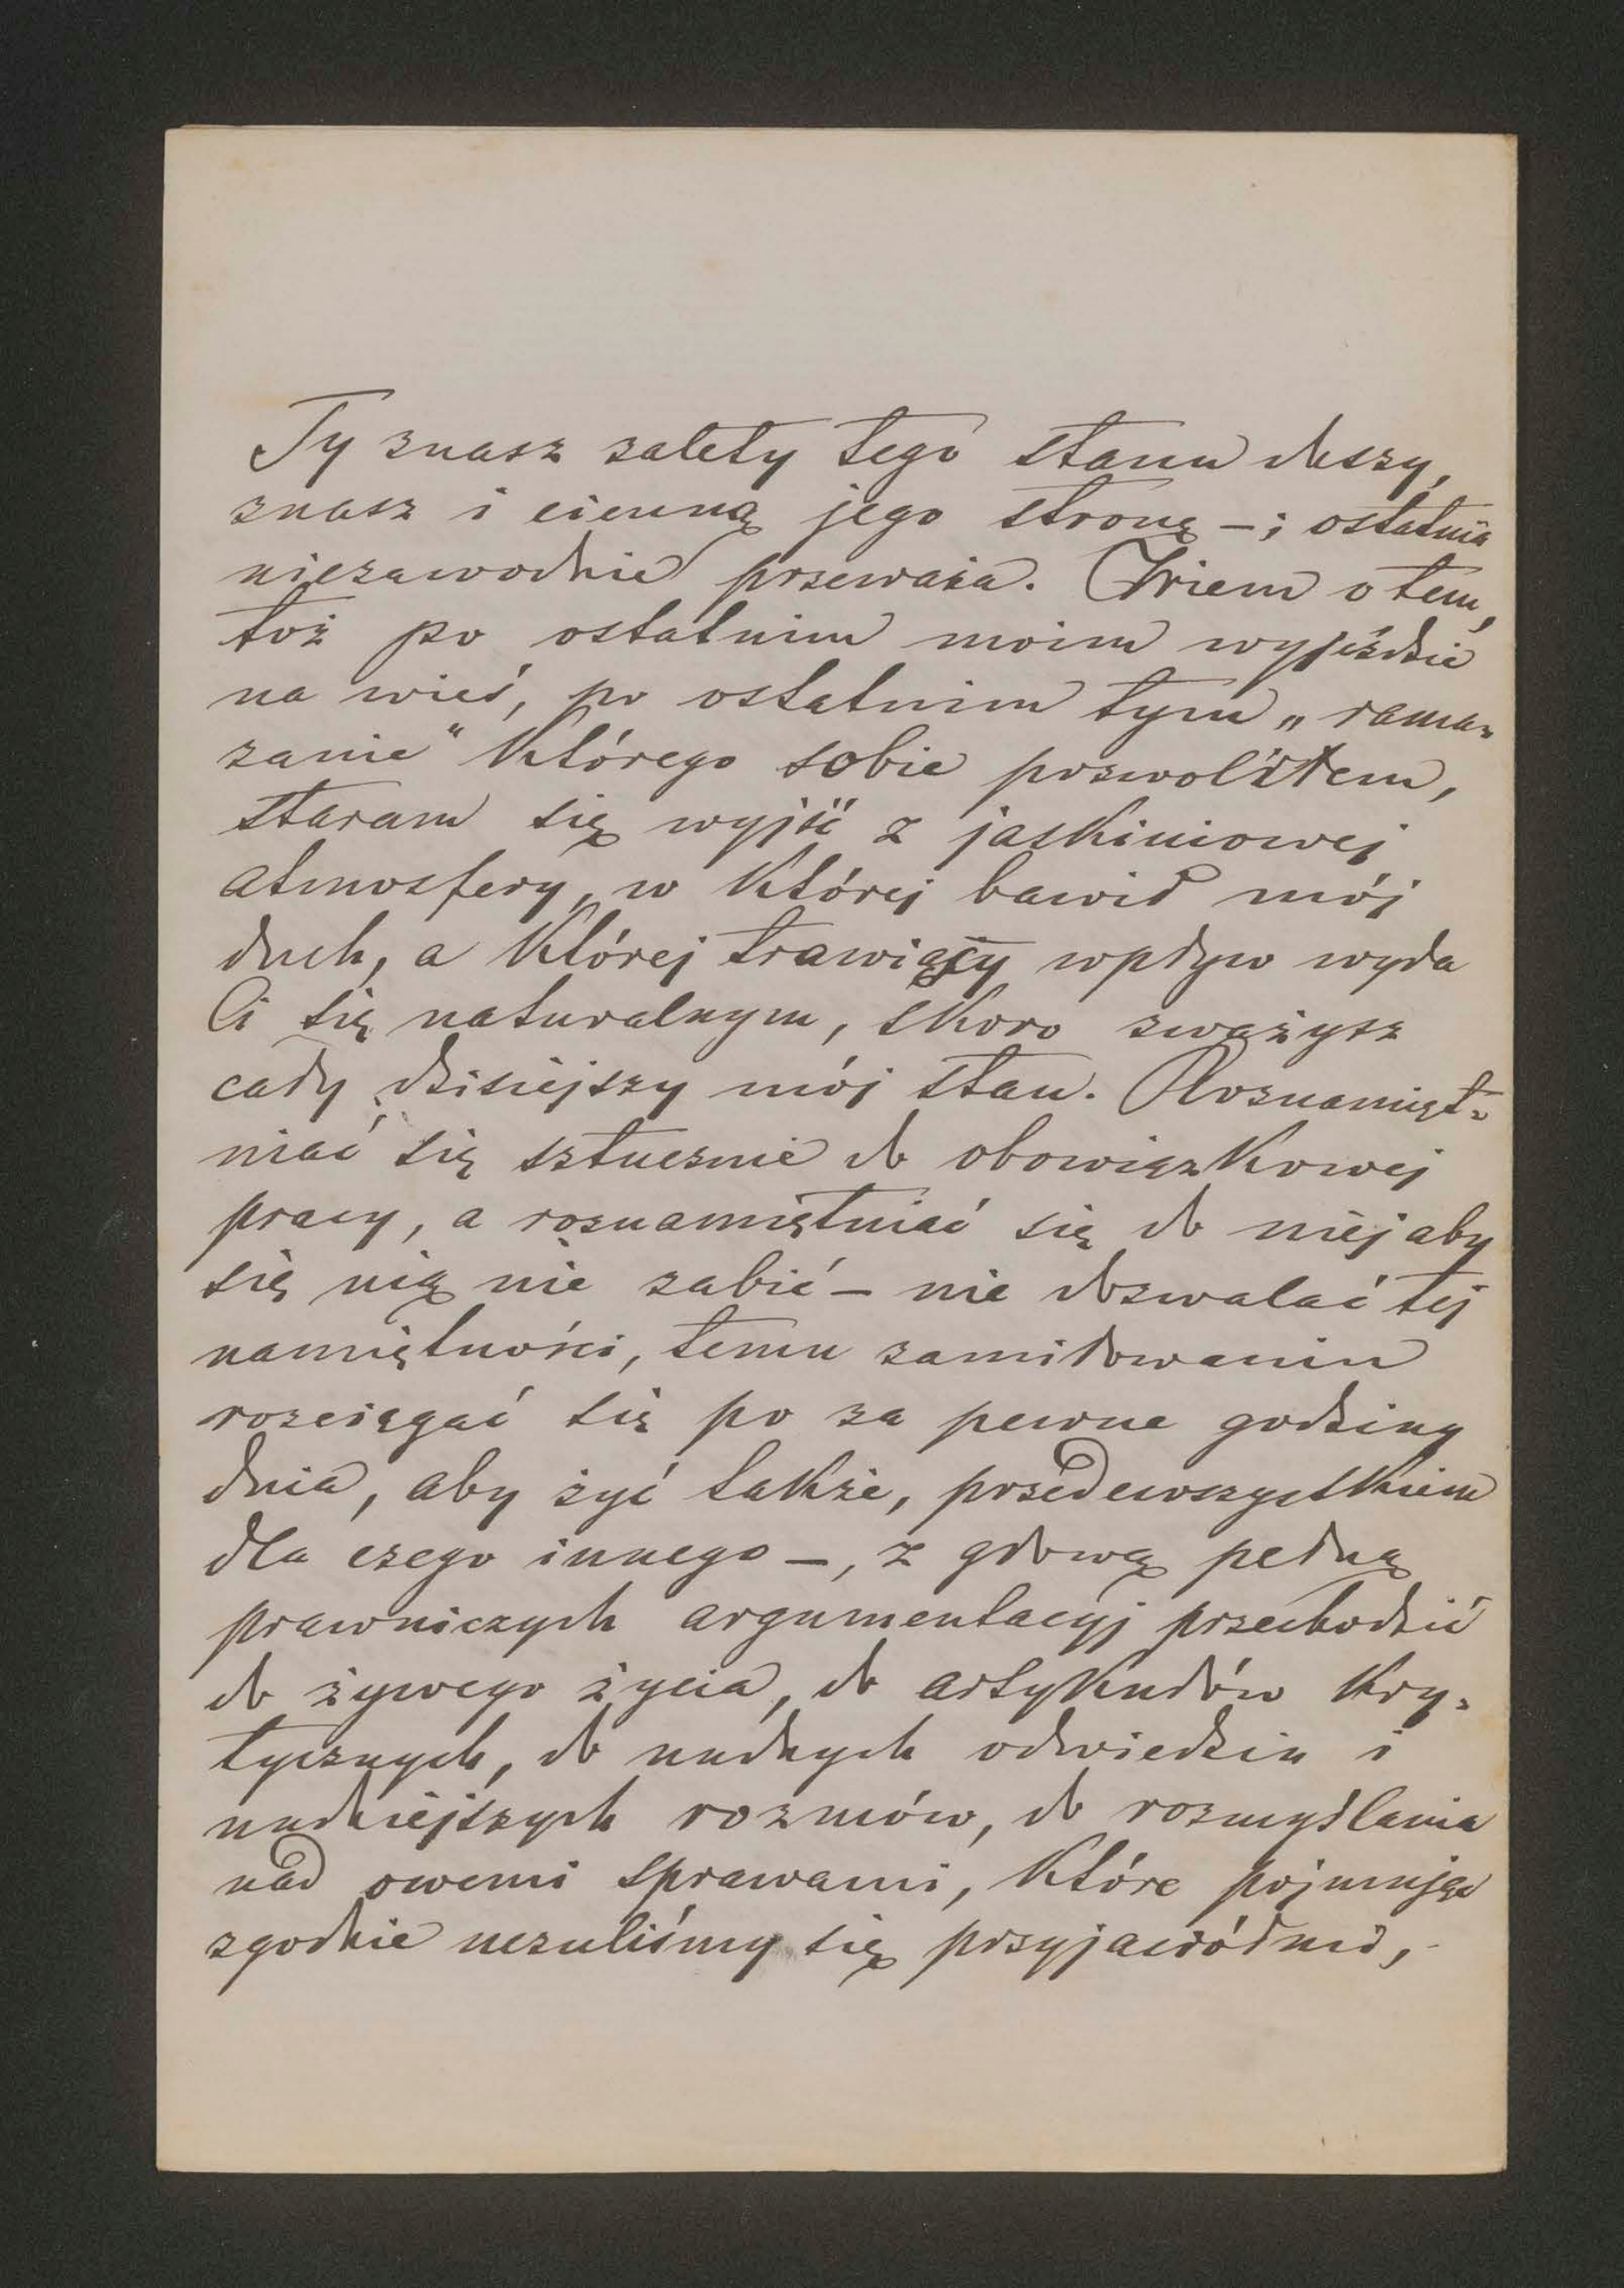 Ty znasz zalety tego stanu duszy,
znasz i ciemną jego stronę – i ostatnia
niezawodnie przeważa. Wiem o tem,
toż po ostatnim moim wyjeździe
na wieś, po ostatnim tym „rama-
zanie" którego sobie pozwoliłem,
staram się wyjść z jaskiniowej
atmosfery, w której bawił mój
duch, a której trawiący wpływ wyda
Ci się naturalnym, skoro zważysz
cały dzisiejszy mój stan. Roznamięt-
niać się sztucznie do obowiązkowej
pracy, a roznamiętniać się do niej aby
się nią nie zabić – nie dozwalać tej
namiętności, temu zamiłowaniu
rozciągać się po za pewne godziny
dnia, aby żyć także, przedewszystkiem
dla czego innego –, z głową pełną
prawniczych argumentacyj przechodzić
do żywego życia, do artykułów kry-
tycznych, do nudnych odwiedzin i
nudniejszych rozmów, do rozmyślania
nad owemi sprawami, które pojmując
zgodnie uczuliśmy się przyjaciółmi,